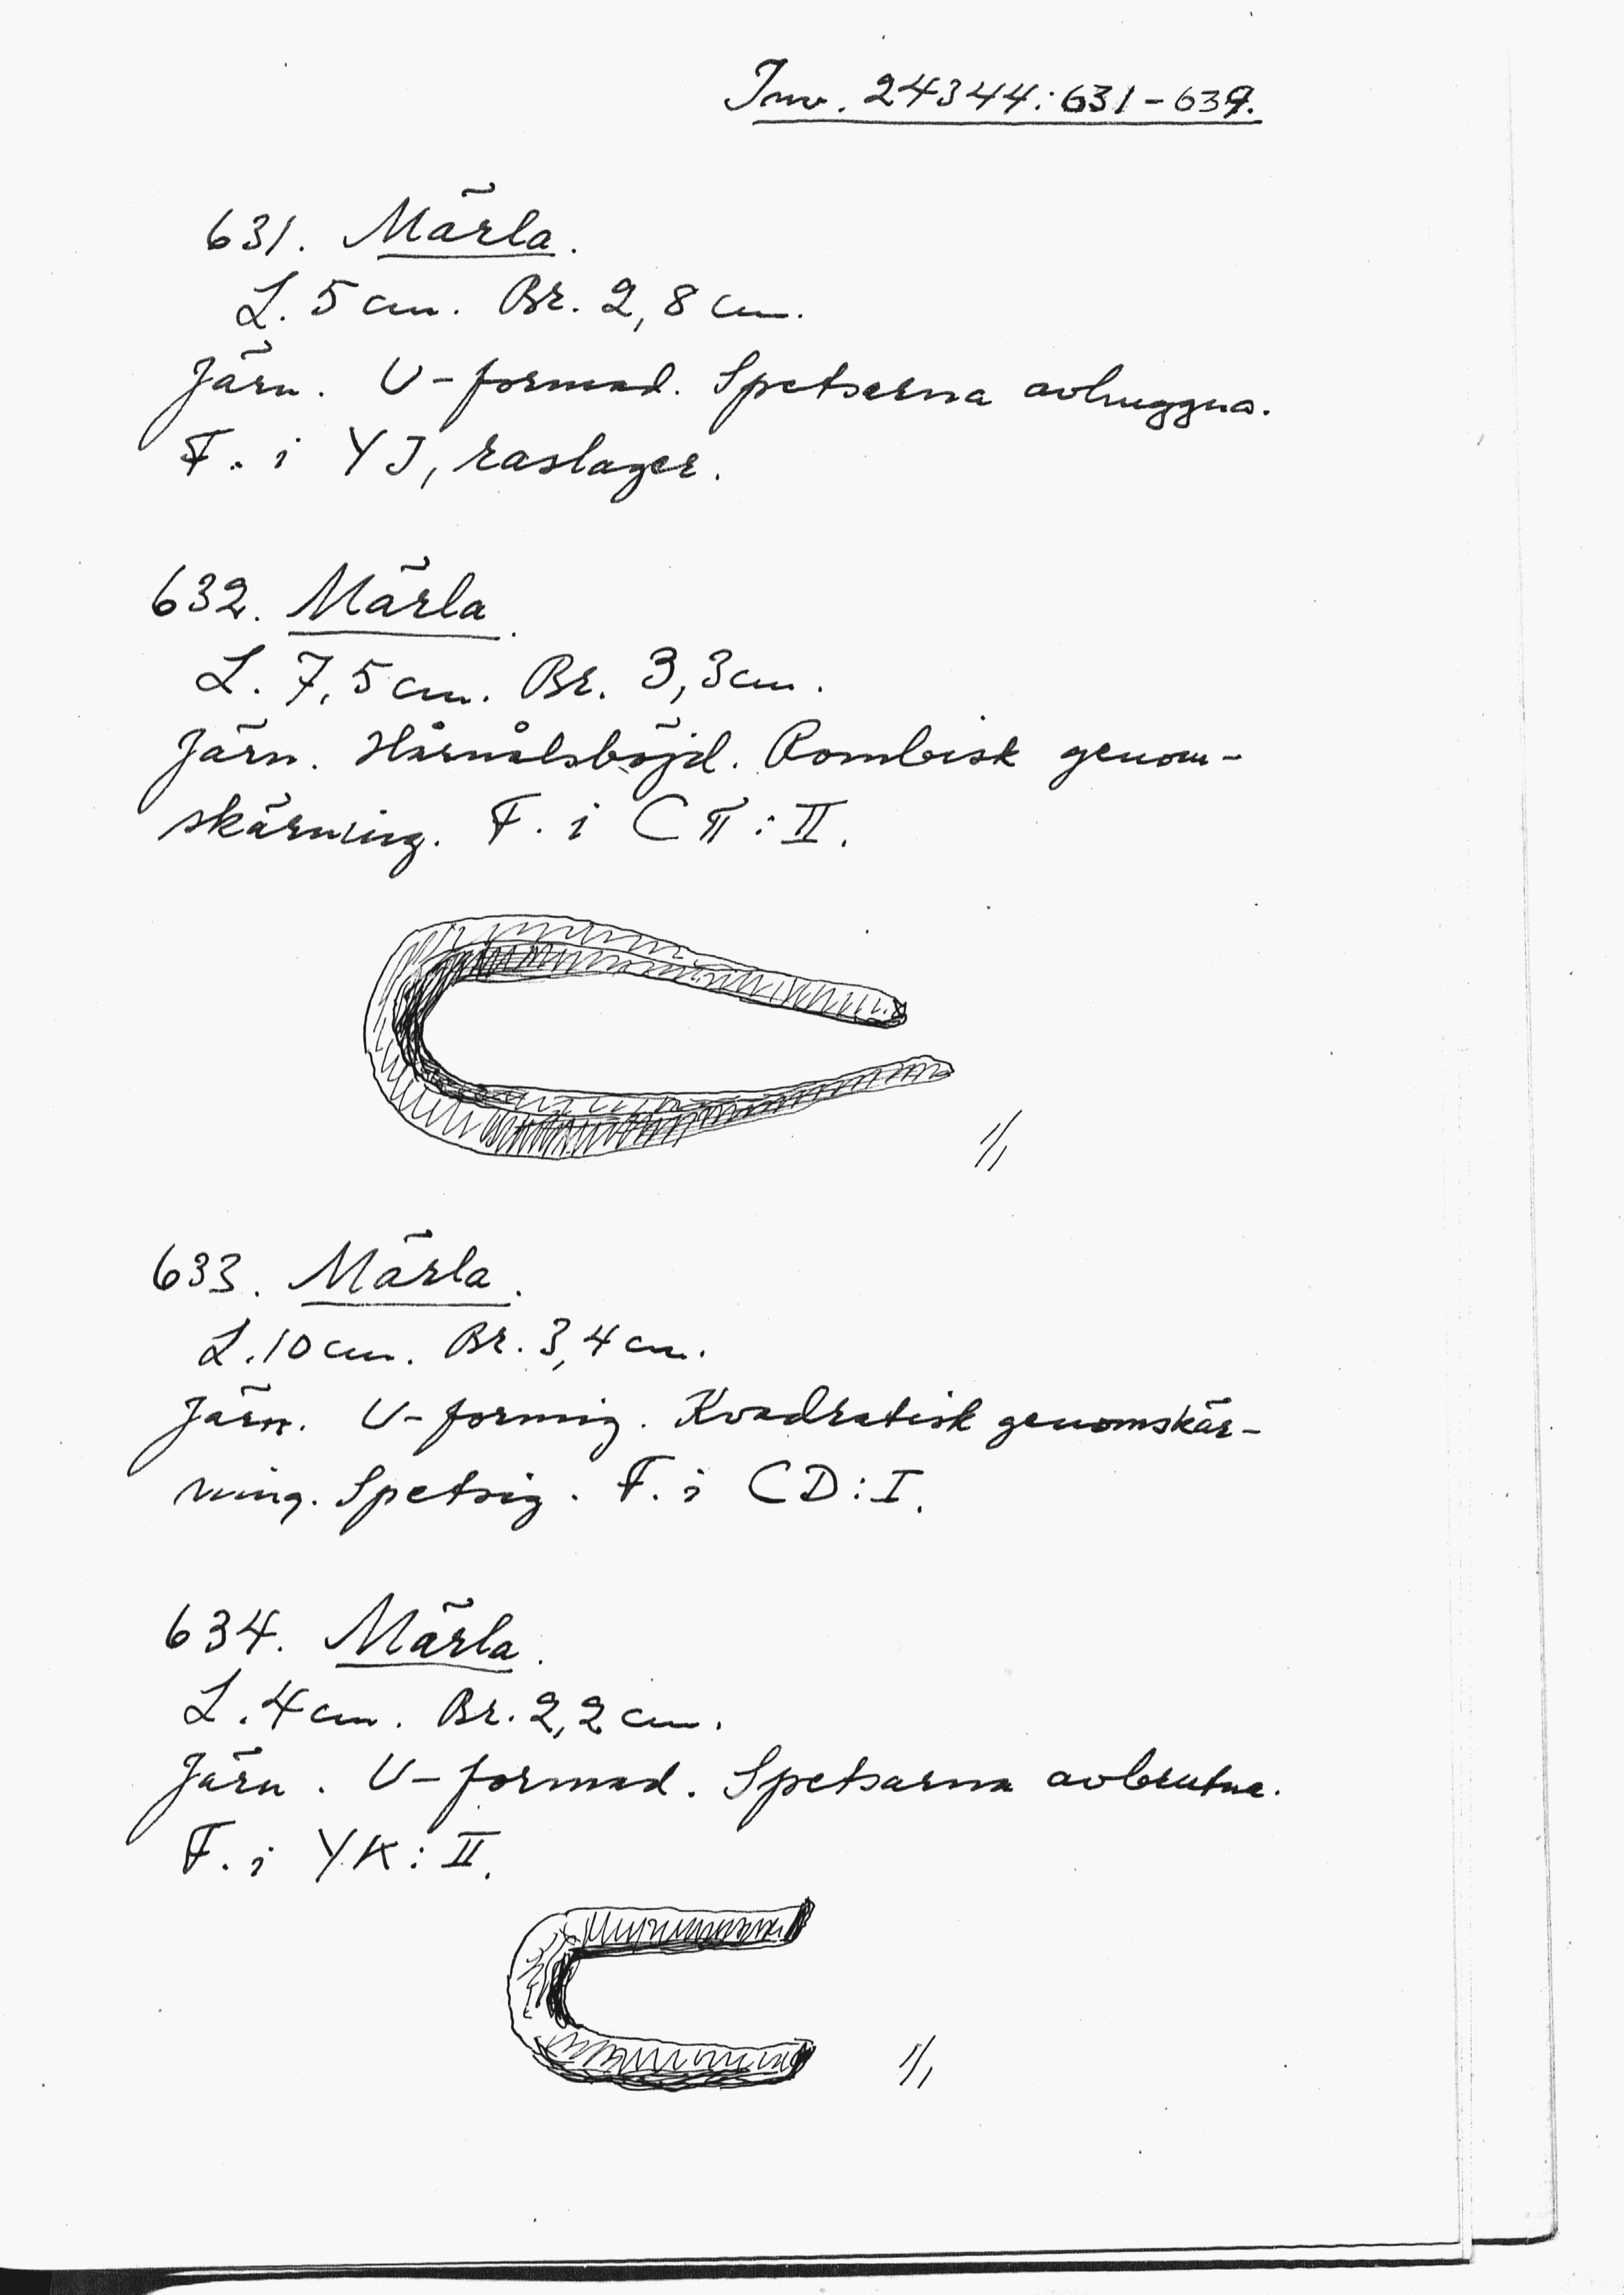 Inv. 24344:631-639.
631. Märla.
L. 5 cm. Br. 2,8 cm.
Järn. U-formad. Spetserna avhuggna.
F. i YJ, raslager.
632. Märla.
L. 7,5 cm. Br. 3,3 cm.
Järn. Hårnålsböjd. Rombisk genom-
skärning. F. i C : II.
1/1
633. Märla.
L. 10 cm. Br. 3,4 cm.
Järn. U-formig. Kvadratisk genomskär-
ning. Spetsig. F. i CD:I.
634. Märla.
L. 4 cm. Br. 2,2 cm.
Järn. U-formad. Spetsarna avbrutna.
F. i YK:II.
1/1